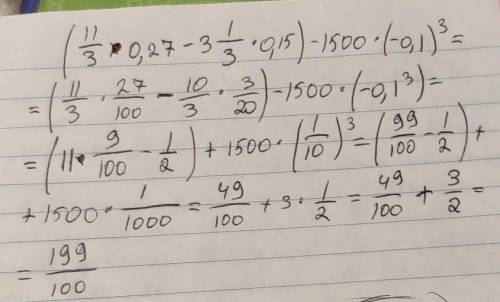 (11/3 · 0,27 - 3 1/3 · 0,15) - 1500 · (-0,1)³ =
= (11/3 · 27/100 - 10/3 · 3/20) - 1500 · (-0,1³) =
= (11 · 9/100 - 1/2) + 1500 · (1/10)³ = (99/100 - 1/2) +
+ 1500 · 1/1000 = 49/100 + 3 · 1/2 = 49/100 + 3/2 =
= 199/100